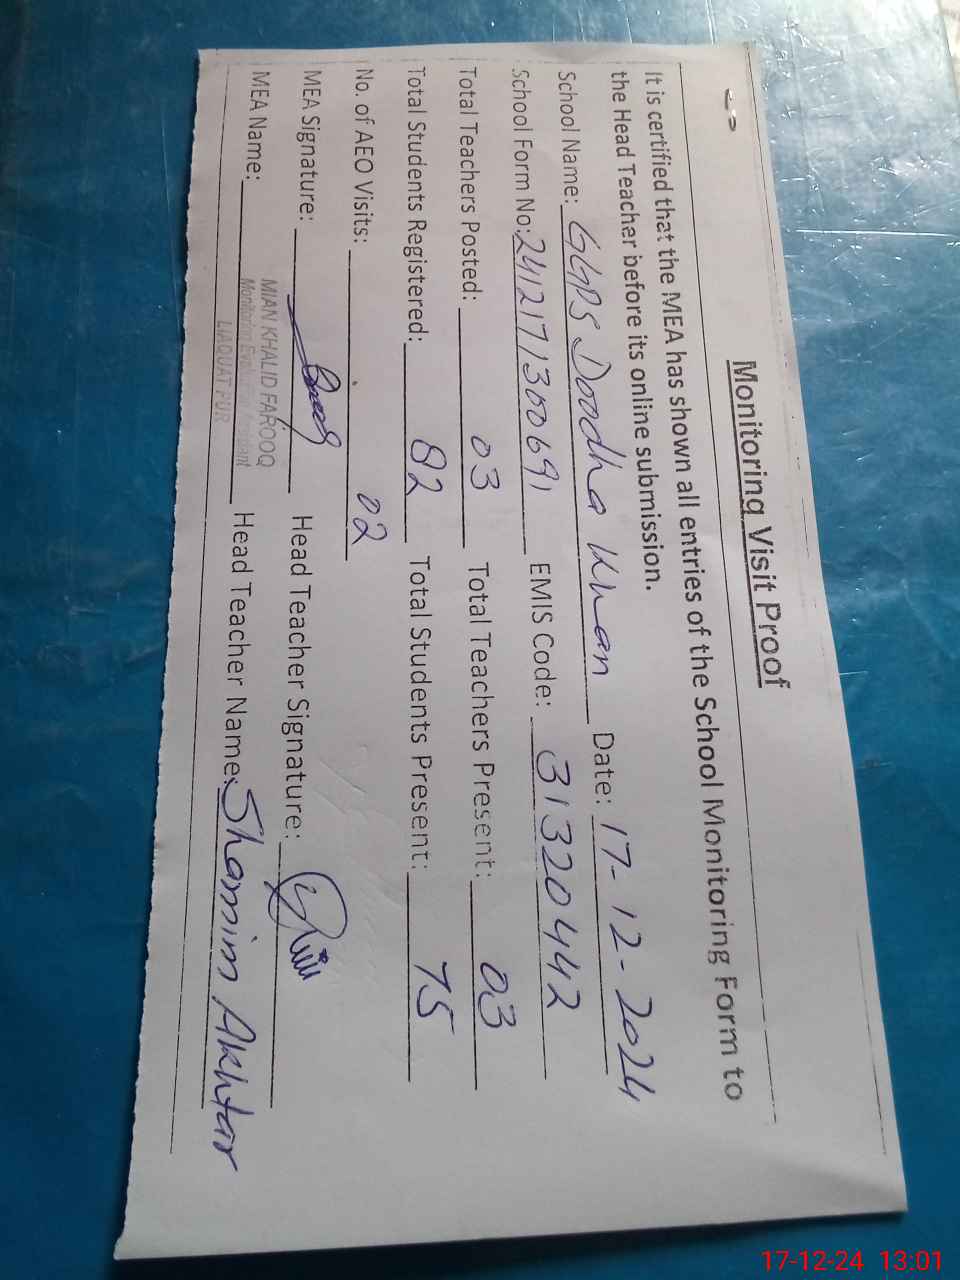 Monitoring Visit Proof
It is certified that the MEA has shown all entries of the School Monitoring Form to
the Head Teacher before its online submission.
School Name: GGPS Doodha Khan Date: 17-12-2024
School Form No: 2412171300691 EMIS Code: 31320442
Total Teachers Posted: 03 Total Teachers Present: 03
Total Students Registered: 82 Total Students Present: 75
No. of AEO Visits: 02
MEA Signature: Head Teacher Signature:
MIAN KHALID FAROOQ
Monitoring Evaluation Assistant
LIAQUAT PUR
MEA Name: Head Teacher Name: Shamim Akhtar
17-12-24 13:01